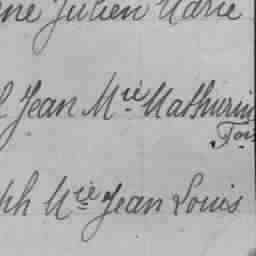 ne Julien Marie
l Jean Mie Mathurin
Fois
ph Mie Jean Louis